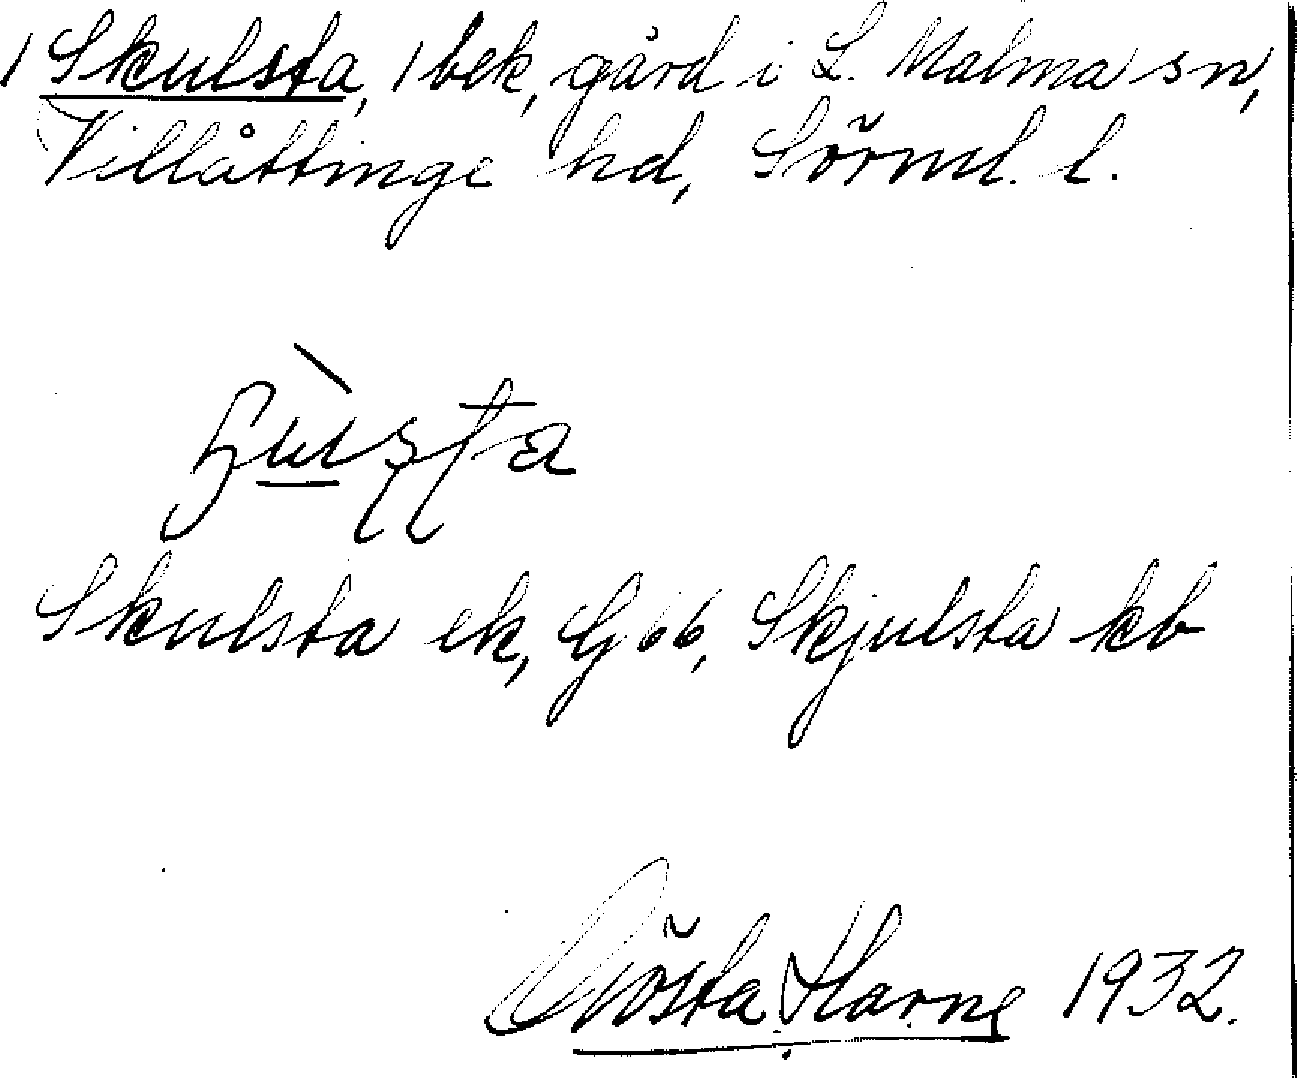 1 Skulsta, 1 bek, gård i L. Malma sn,
Villåttinge hd, Sörml. l.
Skulsta ek, G 66, Skjulsta kb
Gösta Harne 1932.